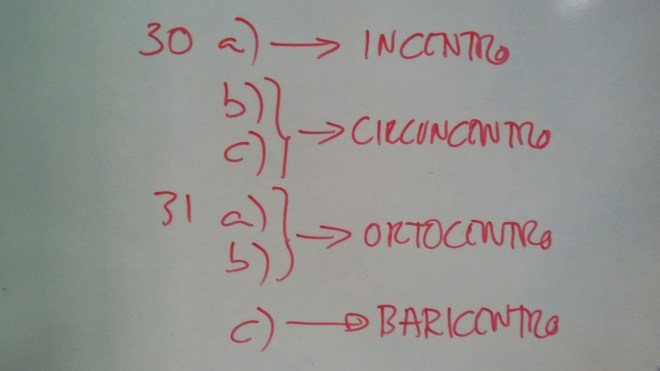 30 a) → INCENTRO
b)
c) } → CIRCUNCENTRO
31 a)
b) } → ORTOCENTRO
c) → BARICENTRO